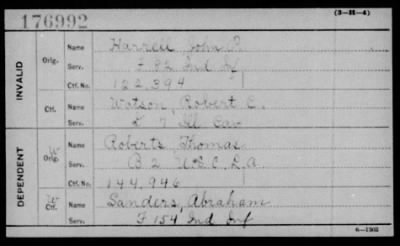 176992
(3-H-4)
INVALID
Orig. Name Harrell John P.
Serv. F 82 Ind Inf
Ctf. No. 122,394
Ctf. Name Watson, Robert C.
Serv. K 7 Ill Cav
DEPENDENT
W Orig. Name Roberts Thomas
Serv. B 2 U.S.C. L.A.
Ctf. No. 144,946
W Ctf. Name Sanders, Abraham
Serv. F 154 Ind Inf
6-1202